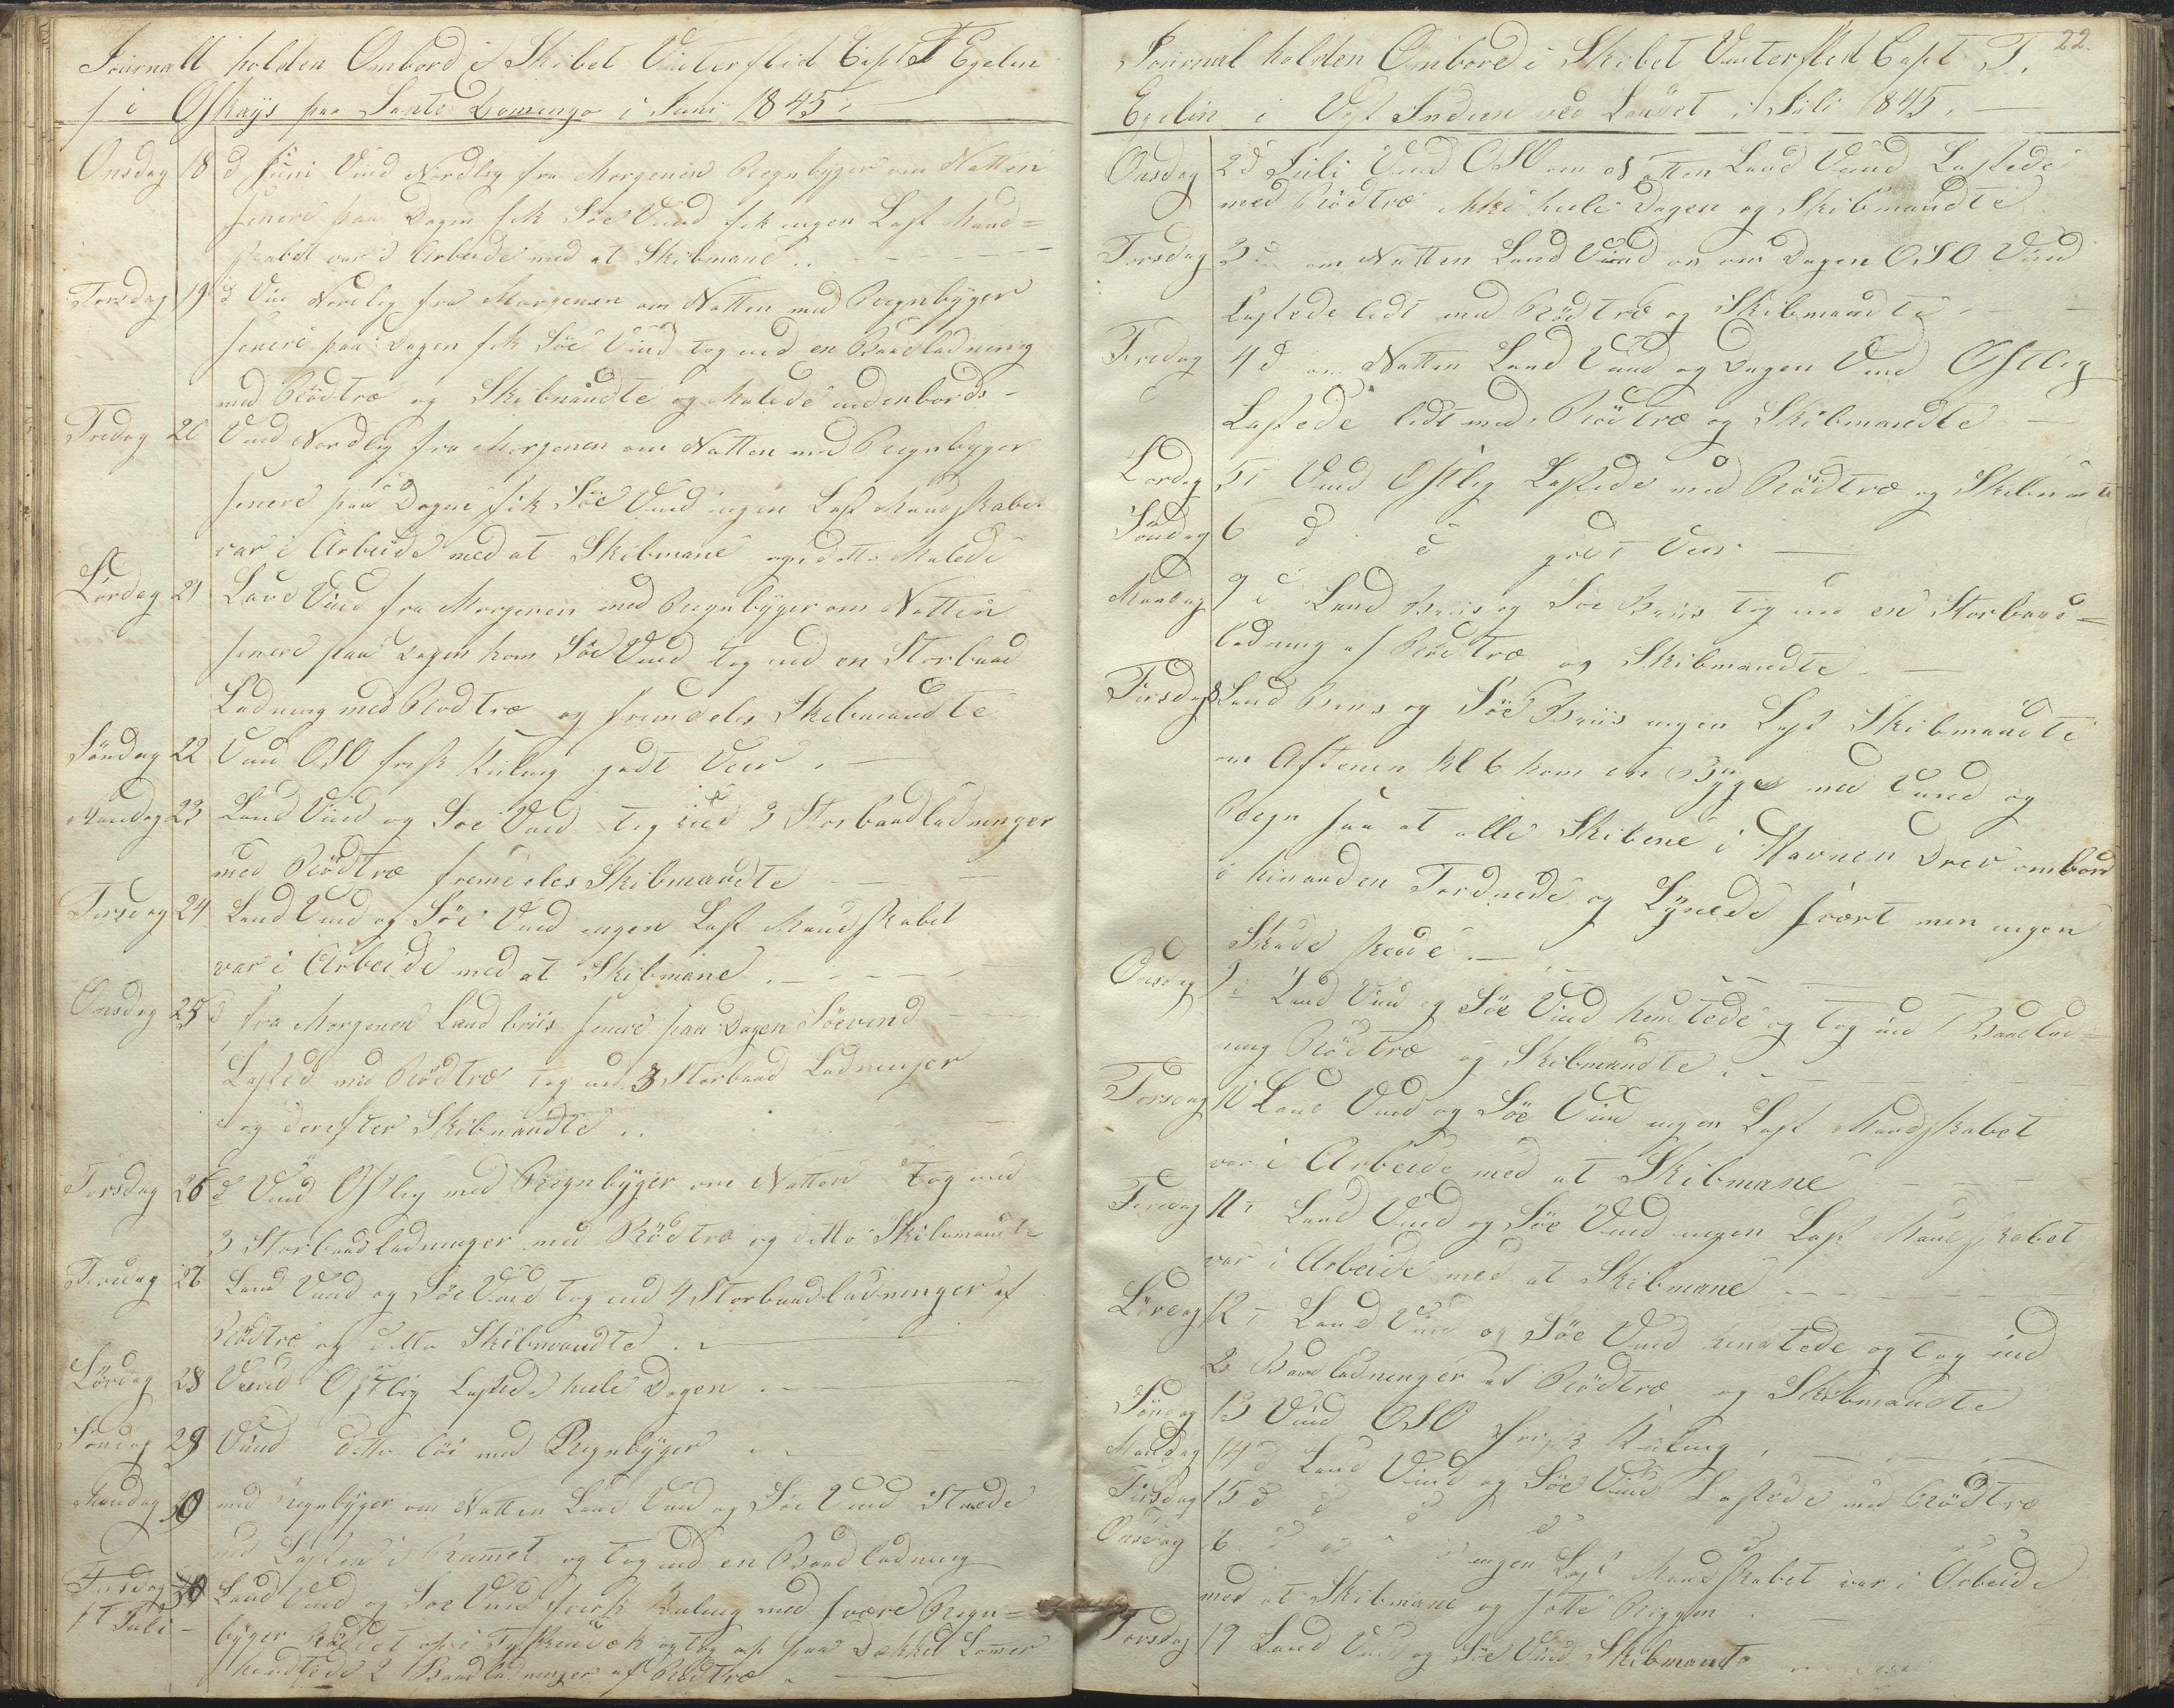 Journall holden Ombord i Skibet Vinterflid Capt T Egelin
i Oskays paa Sante Domingo i Juni 1845.
Onsdag 18 d Juni Vind Nordlig fra Morgenen Regnbÿger om Natten
senere paa Dagen fik Söe Vind fik ingen Last Mand=
skabet var i Arbeide med at Skibmane
Torsdag 19 d Vin Nordlig fra Morgenen om Natten med Regnbÿger
senere paa Dagen fik Söe Vind tog ind en Baadladning
med Rödtræ og Skibmandte og Malede indenbords
Fredag 20 Vind Nordlig fra Morgenen om Natten med Regnbyger
senere paa Dagen fik Söe Vind ingen Last Mandskabet
var i Arbeide med at Skibmane og ditto Malede
Lördag 21 Land Vind fra Morgenen med Regnbÿger om Natten
senere paa Dagen kom Söe Vind tog ind en Storbaad
Ladning med Rödtræ og fremdeles Skibmandte
Söndag 22 Vind OSO frisk Kuling godt Veir
Mandag 23 Land Vind og Söe Vind tog ind 3 Storbaadladninger
med Rödtræ fremdeles Skibmandte
Tirsdag 24 Land Vind og Söe Vind ingen Last Mandskabet
var i Arbeide med at Skibmane
Onsdag 25 d fra Morgenen Land briis senere paa Dagen Söevind
Lasted med Rödtræ tog ind 3 Storbaad Ladninger
og derefter Skibmandte
Torsdag 26 d Vind Ostlig med Regnbÿger om Natten tog ind
3 Storbaadladninger med Rödtræ og ditto Skibmandte
Fredag 27 Land Vind og Söe Vind tog ind 4 Storbaadladninger af
Rödtræ og ditto Skibmandte
Lördag 28 Vind Ostlig Lastede hele Dagen
Söndag 29 Vind ditto med Regnbÿger
Mandag 30 med Regnbÿger om Natten Land Vind og Söe Vind Stuede
Lasten i Rummet og tog ind en Baadladning
Tirsdag Land Vind og Söe Vind frisk Kuling med svære Regn=
1t Juli byger op i og tog op paa Dækket
hendtede 2 Baadladninger af Rödtræ
22.
Journal holden Ombord i Skibet Vinterflid Capt T.
Egelin i Vest Indien ved Landet i Juli 1845.
Onsdag 2d Juli Vind OSO om Natten Land Vind Lastede
med Rödtræ ikke hele Dagen og Skibmandte
Torsdag 3 d om Natten Land Vind og om Dagen OSO Vind
Lastede lidt med Rödtræ og Skibmandte
Fredag 4 d om Natten Land Vind og Dagen Vind Ostlig
Lastede lidt med Rödtræ og Skibmandte
Lördag 5 Vind Ostlig Lastede med Rödtræ og Skibmandte
Söndag 6 d d godt Veir
Mandag 7 d Land Briis og Söe Briis tog ind en Storbaad=
ladning af Rödtræ og Skibmandte
Tirsdag 8 Land Briis og Söe Briis ingen Last Skibmandte
om Aftenen Kl 6 kom en Byge med Vind og
Regn saa at alle Skibene i Havnen drev ombord
i hinanden Tordnede og Lÿnede svært men ingen
Skade skede
Onsdag 9 d Land Vind og Söe Vind hendtede og tog ind 1 Baadlad=
ning Rödtræ og Skibmandte
Torsdag 10 Land Vind og Söe Vind ingen Last Mandskabet
var i Arbeide med at Skibmane
Fredag 11 Land Vind og Söe Vind ingen Last Mandskabet
var i Arbeide med at Skibmane
Lördag 12 Land Vind og Söe Vind hendtede og tog ind
2 Baadladninger af Rödtræ og Skibmandte
Söndag 13 Vind OSO frisk Kuling
Mandag 14 d Land Vind og Söe Vind Lastede med Rödtræ
Tirsdag 15 d d d d
Onsdag 16 d ingen Last Mandskabet var i Arbeide
med at Skibmane og sætte Riggen
Torsdag 17 Land Vind og Söe Vind Skibmandte